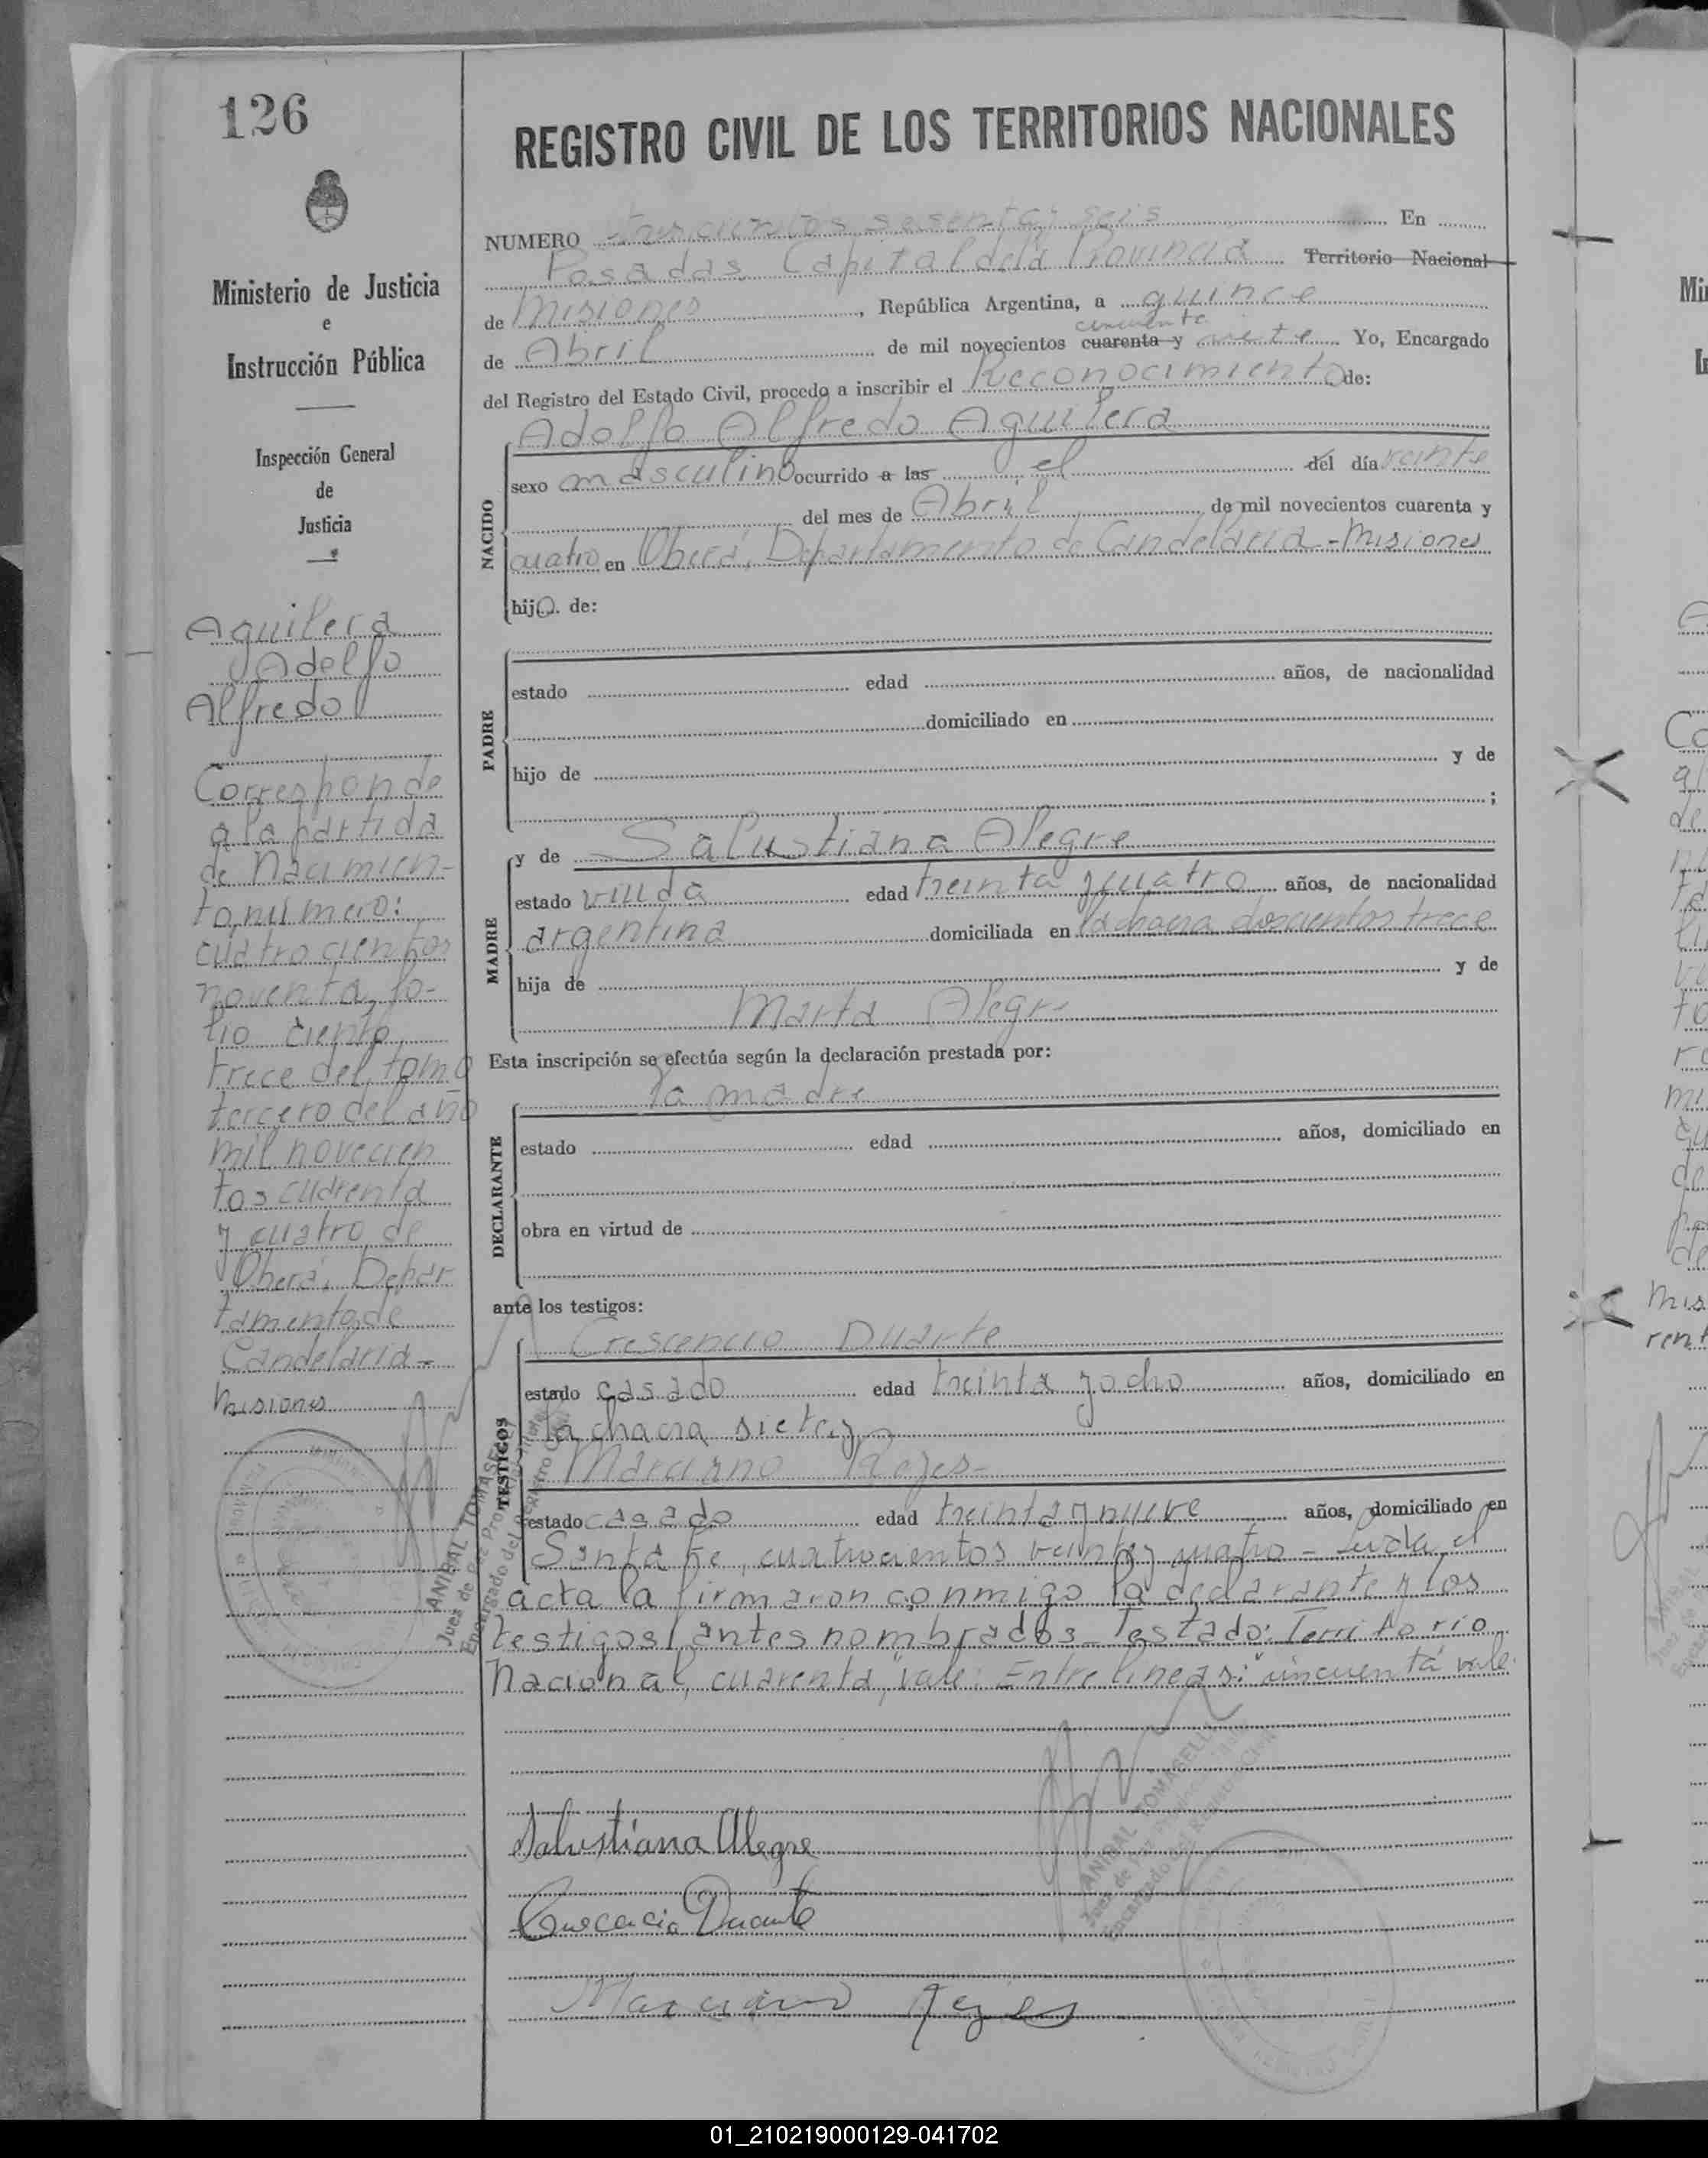 126
REGISTRO CIVIL DE LOS TERRITORIOS NACIONALES
Ministerio de Justicia
e
Instrucción Pública
Inspección General
de
Justicia
Aguilera
Adolfo
Alfredo
Corresponde
a la partida
de Nacimien-
to, número:
cuatrocientos
noventa, fo-
lio ciento
trece del tomo
tercero del año
mil novecien
tos cuarenta
y cuatro de
Oberá, Depar
tamento de
Candelaria-
Misiones
ANIBAL TOMASELLI
Juez de Paz
Encargado del Registro Civil
NUMERO trescientos sesenta y seis En
Posadas, Capital de la Provincia Territorio Nacional
de Misiones, República Argentina, a quince
cincuenta
de Abril de mil novecientos cuarenta y siete Yo, Encargado
del Registro del Estado Civil, procedo a inscribir el Reconocimiento de:
NACIDO
Adolfo Alfredo Aguilera
sexo masculino ocurrido a las el del día veinte
del mes de Abril de mil novecientos cuarenta y
cuatro en Oberá, Departamento de Candelaria - Misiones
hijo. de:
PADRE
estado edad años, de nacionalidad
domiciliado en
hijo de y de
;
MADRE
y de Salustiana Alegre
estado viuda edad treinta y cuatro años, de nacionalidad
argentina domiciliada en la chacra doscientos trece
hija de y de
Marta Alegre
Esta inscripción se efectúa según la declaración prestada por:
DECLARANTE
la madre
estado edad años, domiciliado en
obra en virtud de
ante los testigos:
TESTIGOS
Crescencio Duarte
estado casado edad treinta y ocho años, domiciliado en
la chacra siete y
Marciano Reyes-
estado casado edad treinta y nueve años, domiciliado en
Santa Fe, cuatrocientos veinte y cuatro - Leida el
acta la firmaron conmigo la declarante y los
testigos antes nombrados- Testado: Territorio
Nacional, cuarenta, vale: Entre lineas: "cincuenta" vale.
ANIBAL TOMASELLI
Juez de Paz
Encargado del Registro Civil
Salustiana Alegre
Crescencio Duarte
Marciano Reyes
01_210219000129-041702